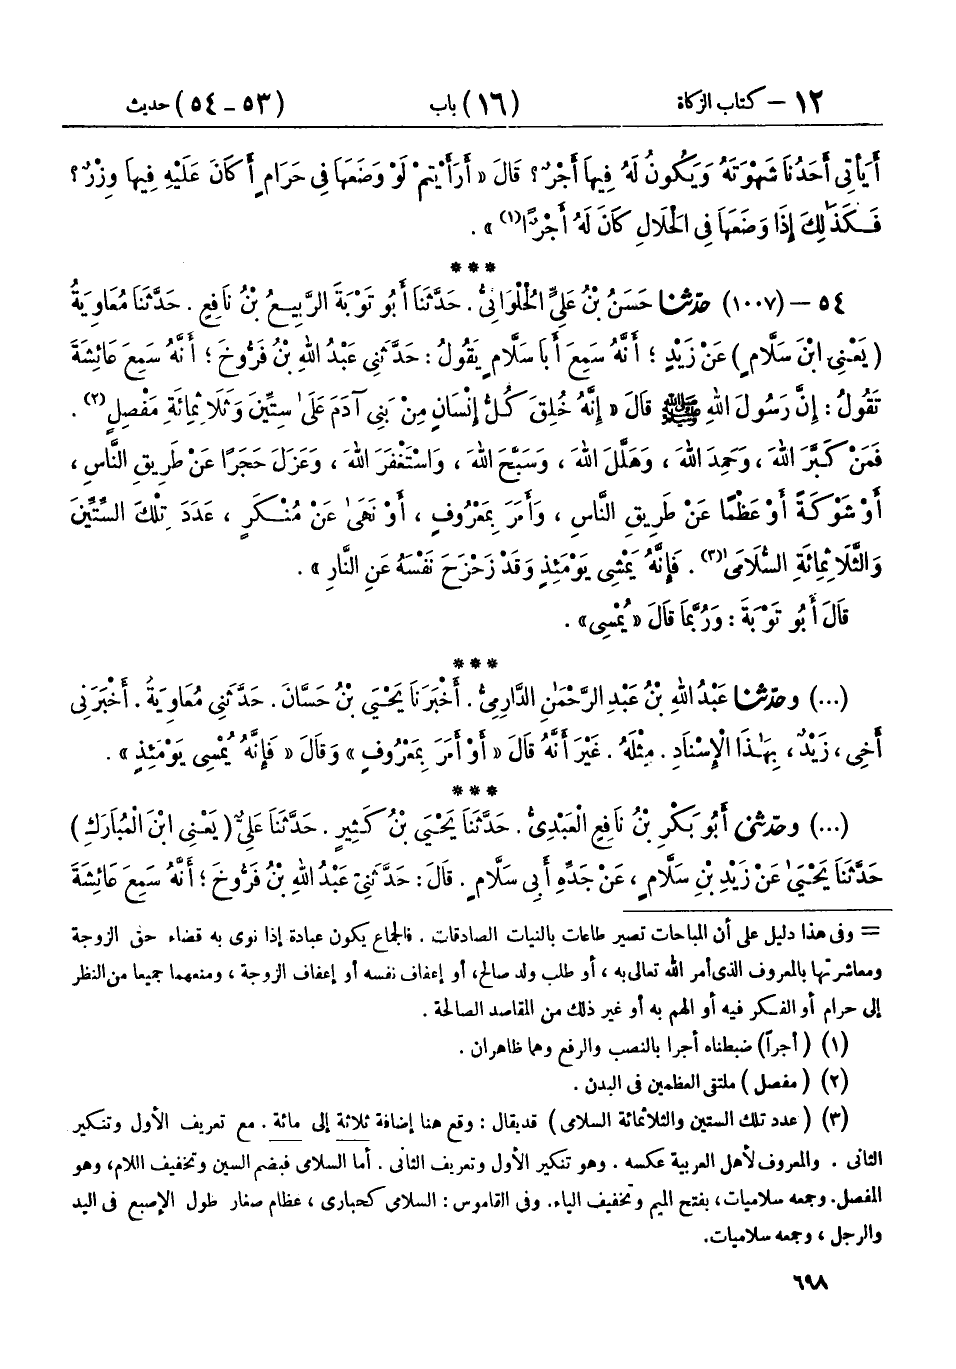 ١٢ – كتاب الزكاة (١٦) باب (٥٣ – ٥٤) حديث
أَيَأْتِى أَحَدُنَا شَهْوَتَهُ وَيَكُونُ لَهُ فِيهَا أَجْرٌ؟ قَالَ « أَرَأَيْتُمْ لَوْ وَضَعَهَا فِى حَرَامٍ أَكَانَ عَلَيْهِ فِيهَا وِزْرٌ؟
فَكَذَٰلِكَ إِذَا وَضَعَهَا فِى الْحَلَالِ كَانَ لَهُ أَجْرًا(١) » .
***
٥٤ – (١٠٠٧) حدثنا حَسَنُ بْنُ عَلِيٍّ الْحُلْوَانِىُّ . حَدَّثَنَا أَبُو تَوْبَةَ الرَّبِيعُ بْنُ نَافِعٍ . حَدَّثَنَا مُعَاوِيَةُ
( يَعْنِى ابْنَ سَلَّامٍ ) عَنْ زَيْدٍ ؛ أَنَّهُ سَمِعَ أَبَا سَلَّامٍ يَقُولُ : حَدَّثَنِى عَبْدُ اللهِ بْنُ فَرُّوخَ ؛ أَنَّهُ سَمِعَ عَائِشَةَ
تَقُولُ : إِنَّ رَسُولَ اللهِ ﷺ قَالَ « إِنَّهُ خُلِقَ كُلُّ إِنْسَانٍ مِنْ بَنِى آدَمَ عَلَىٰ سِتِّينَ وَثَلَاثِمِائَةِ مَفْصِلٍ(٢) .
فَمَنْ كَبَّرَ اللهَ ، وَحَمِدَ اللهَ ، وَهَلَّلَ اللهَ ، وَسَبَّحَ اللهَ ، وَاسْتَغْفَرَ اللهَ ، وَعَزَلَ حَجَرًا عَنْ طَرِيقِ النَّاسِ ،
أَوْ شَوْكَةً أَوْ عَظْمًا عَنْ طَرِيقِ النَّاسِ ، وَأَمَرَ بِمَعْرُوفٍ ، أَوْ نَهَىٰ عَنْ مُنْكَرٍ ، عَدَدَ تِلْكَ السِّتِّينَ
وَالثَّلَاثِمِائَةِ السُّلَامَىٰ(٣) . فَإِنَّهُ يَمْشِى يَوْمَئِذٍ وَقَدْ زَحْزَحَ نَفْسَهُ عَنِ النَّارِ » .
قَالَ أَبُو تَوْبَةَ : وَرُبَّمَا قَالَ « يُمْسِى» .
***
(...) وحدثنا عَبْدُ اللهِ بْنُ عَبْدِ الرَّحْمَٰنِ الدَّارِمِىُّ . أَخْبَرَنَا يَحْيَىٰ بْنُ حَسَّانَ . حَدَّثَنِى مُعَاوِيَةُ . أَخْبَرَنِى
أَخِى ، زَيْدٌ ، بِهَٰذَا الْإِسْنَادِ . مِثْلَهُ . غَيْرَ أَنَّهُ قَالَ « أَوْ أَمَرَ بِمَعْرُوفٍ » وَقَالَ « فَإِنَّهُ يُمْسِى يَوْمَئِذٍ » .
***
(...) وحدثنى أَبُو بَكْرِ بْنُ نَافِعٍ الْعَبْدِىُّ . حَدَّثَنَا يَحْيَىٰ بْنُ كَثِيرٍ . حَدَّثَنَا عَلِىٌّ ( يَعْنِى ابْنَ الْمُبَارَكِ )
حَدَّثَنَا يَحْيَىٰ عَنْ زَيْدِ بْنِ سَلَّامٍ ، عَنْ جَدِّهِ أَبِى سَلَّامٍ . قَالَ : حَدَّثَنِى عَبْدُ اللهِ بْنُ فَرُّوخَ ؛ أَنَّهُ سَمِعَ عَائِشَةَ
= وفى هذا دليل على أن المباحات تصير طاعات بالنيات الصادقات . فالجماع يكون عبادة إذا نوى به قضاء حق الزوجة
ومعاشرتها بالمعروف الذى أمر الله تعالى به ، أو طلب ولد صالح، أو إعفاف نفسه أو إعفاف الزوجة ، ومنعهما جميعا من النظر
إلى حرام أو الفكر فيه أو الهم به أو غير ذلك من المقاصد الصالحة .
(١) ( أجراً) ضبطناه أجرا بالنصب والرفع وهما ظاهران .
(٢) ( مفصل ) ملتقى العظمين فى البدن .
(٣) ( عدد تلك الستين والثلاثمائة السلامى ) قديقال : وقع هنا إضافة ثلاثة إلى مائة . مع تعريف الأول وتنكير
الثانى . والمعروف لأهل العربية عكسه . وهو تنكير الأول وتعريف الثانى . أما السلامى فبضم السين وتخفيف اللام، وهو
المفصل. وجمعه سلاميات، بفتح الميم وتخفيف الياء. وفى القاموس : السلامى كحبارى ، عظام صغار طول الإصبع فى اليد
والرجل ، وجمعه سلاميات.
٦٩٨